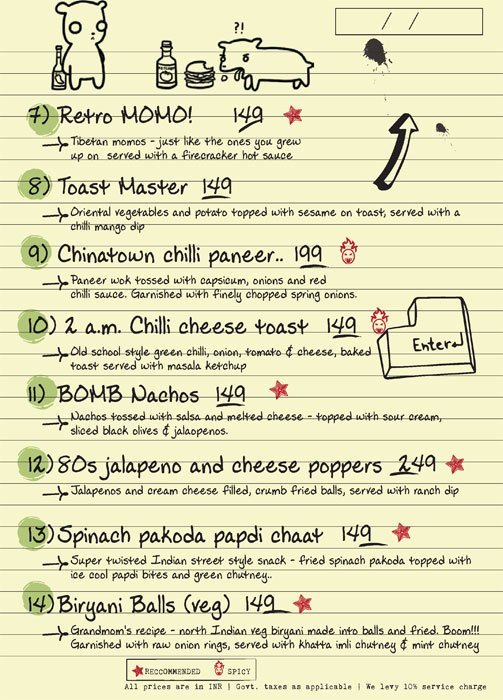 / /
?!
7) Retro MOMO! 149
Tibetan momos - just like the ones you grew
up on served with a firecracker hot sauce
8) Toast Master 149
Oriental vegetables and potato topped with sesame on toast, served with a
chilli mango dip
9) Chinatown chilli paneer.. 199
Paneer wok tossed with capsicum, onions and red
chilli sauce. Garnished with finely chopped spring onions.
10) 2 a.m. Chilli cheese toast 149
Enter
Old school style green chilli, onion, tomato & cheese, baked
toast served with masala ketchup
11) BOMB Nachos 149
Nachos tossed with salsa and melted cheese - topped with sour cream,
sliced black olives & jalaopenos.
12) 80s jalapeno and cheese poppers 249
Jalapenos and cream cheese filled, crumb fried balls, served with ranch dip
13) Spinach pakoda papdi chaat 149
Super twisted Indian street style snack - fried spinach pakoda topped with
ice cool papdi bites and green chutney..
14) Biryani Balls (veg) 149
Grandmom's recipe - north Indian veg biryani made into balls and fried. Boom!!!
Garnished with raw onion rings, served with khatta imli chutney & mint chutney
RECCOMMENDED SPICY
All prices are in INR | Govt. taxes as applicable | We levy 10% service charge